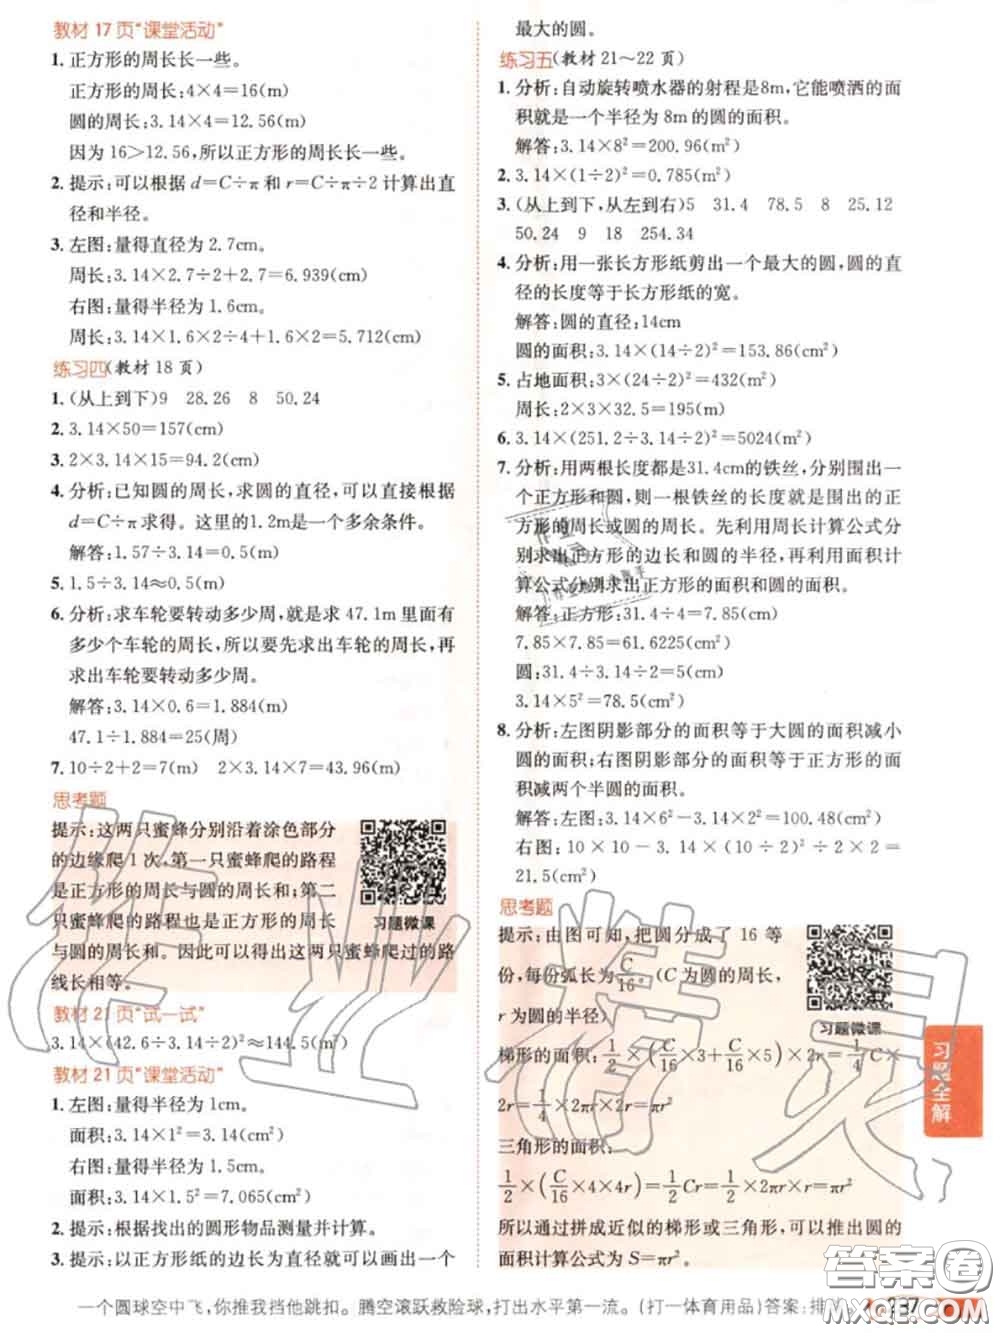 教材 17 页“课堂活动”
1. 正方形的周长长一些。
正方形的周长:4×4=16(m)
圆的周长:3.14×4=12.56(m)
因为 16>12.56,所以正方形的周长长一些。
2. 提示:可以根据 d=C÷π 和 r=C÷π÷2 计算出直
径和半径。
3. 左图:量得直径为 2.7cm。
周长:3.14×2.7÷2+2.7=6.939(cm)
右图:量得半径为 1.6cm。
周长:3.14×1.6×2÷4+1.6×2=5.712(cm)
练习四(教材 18 页)
1. (从上到下)9 28.26 8 50.24
2. 3.14×50=157(cm)
3. 2×3.14×15=94.2(cm)
4. 分析:已知圆的周长,求圆的直径,可以直接根据
d=C÷π求得。这里的1.2m是一个多余条件。
解答:1.57÷3.14=0.5(m)
5. 1.5÷3.14≈0.5(m)
6. 分析:求车轮要转动多少周,就是求 47.1m 里面有
多少个车轮的周长,所以要先求出车轮的周长,再
求出车轮要转动多少周。
解答:3.14×0.6=1.884(m)
47.1÷1.884=25(周)
7. 10÷2+2=7(m) 2×3.14×7=43.96(m)
思考题
提示:这两只蜜蜂分别沿着涂色部分
的边缘爬1次,第一只蜜蜂爬的路程
是正方形的周长与圆的周长和;第二
只蜜蜂爬的路程也是正方形的周长
与圆的周长和。因此可以得出这两只蜜蜂爬过的路
线长相等。
习题微课
教材 21 页“试一试”
3.14×(42.6÷3.14÷2)²≈144.5(m²)
教材 21 页“课堂活动”
1. 左图:量得半径为 1cm。
面积:3.14×1²=3.14(cm²)
右图:量得半径为 1.5cm。
面积:3.14×1.5²=7.065(cm²)
2. 提示:根据找出的圆形物品测量并计算。
3. 提示:以正方形纸的边长为直径就可以画出一个
最大的圆。
练习五(教材 21～22 页)
1. 分析:自动旋转喷水器的射程是8m,它能喷洒的面
积就是一个半径为 8m 的圆的面积。
解答:3.14×8²=200.96(m²)
2. 3.14×(1÷2)²=0.785(m²)
3. (从上到下,从左到右)5 31.4 78.5 8 25.12
50.24 9 18 254.34
4. 分析:用一张长方形纸剪出一个最大的圆,圆的直
径的长度等于长方形纸的宽。
解答:圆的直径:14cm
圆的面积:3.14×(14÷2)²=153.86(cm²)
5. 占地面积:3×(24÷2)²=432(m²)
周长:2×3×32.5=195(m)
6. 3.14×(251.2÷3.14÷2)²=5024(m²)
7. 分析:用两根长度都是31.4cm的铁丝,分别围出一
个正方形和圆,则一根铁丝的长度就是围出的正
方形的周长或圆的周长。先利用周长计算公式分
别求出正方形的边长和圆的半径,再利用面积计
算公式分别求出正方形的面积和圆的面积。
解答:正方形:31.4÷4=7.85(cm)
7.85×7.85=61.6225(cm²)
圆:31.4÷3.14÷2=5(cm)
3.14×5²=78.5(cm²)
8. 分析:左图阴影部分的面积等于大圆的面积减小
圆的面积;右图阴影部分的面积等于正方形的面
积减两个半圆的面积。
解答:左图:3.14×6²－3.14×2²=100.48(cm²)
右图:10×10－3.14×(10÷2)²÷2×2=
21.5(cm²)
思考题
提示:由图可知,把圆分成了 16 等
份,每份弧长为C/16。(C为圆的周长,
r 为圆的半径)
习题微课
梯形的面积:1/2×(C/16×3+C/16×5)×2r=1/4C×
2r=1/4×2πr×2r=πr²
三角形的面积:
1/2×(C/16×4×4r)=1/2Cr=1/2×2πr×r=πr²
所以通过拼成近似的梯形或三角形,可以推出圆的
面积计算公式为 S=πr²。
习题全解
一个圆球空中飞,你推我挡他跳扣。腾空滚跃救险球,打出水平第一流。(打一体育用品)答案:排
237
作业精灵
答案圈
MXQE.COM